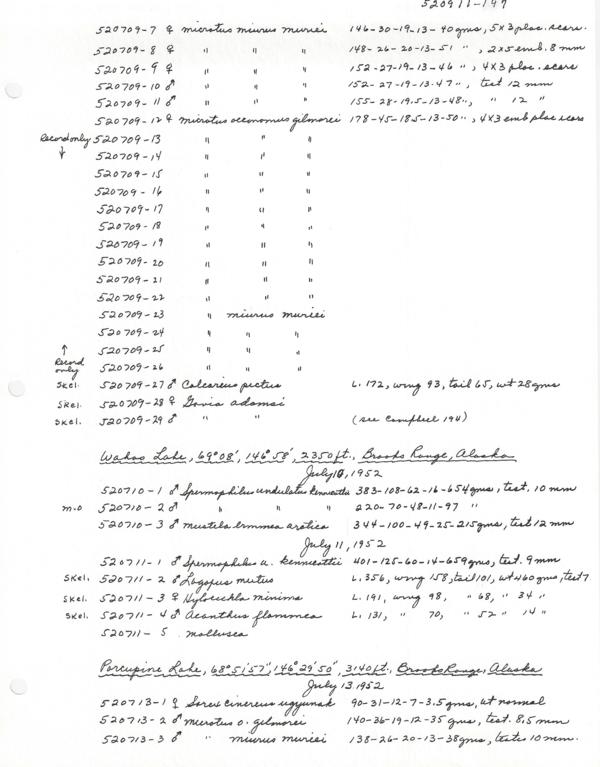 520911-147
520709-7 ♀ microtus miurus muriei 146-30-19-13-40gms, 5x3 plac. scars.
520709-8 ♀ " " " 148-26-20-13-51 ", 2x5 emb. 8 mm
520709-9 ♀ " " " 152-27-19-13-46 ", 4X3 plac. scars
520709-10 ♂ " " " 152-27-19-13-47 ", test 12 mm
520709-11 ♂ " " " 155-28-19.5-13-48", " 12 "
520709-12 ♀ microtus oeconomus gilmorei 178-45-18.5-13-50 ", 4X3 emb plac scars
Record only 520709-13 " " "
↓ 520709-14 " " "
520709-15 " " "
520709-16 " " "
520709-17 " " "
520709-18 " " "
520709-19 " " "
520709-20 " " "
520709-21 " " "
520709-22 " " "
520709-23 " miurus muriei
520709-24 " " "
↑ 520709-25 " " "
Record only 520709-26 " " "
Skel. 520709-27 ♂ Calcarius pictus L. 172, wing 93, tail 65, wt 28gms
Skel. 520709-28 ♀ Gavia adamsi
Skel. 520709-29 ♂ " " (see Campbell 194)
Wahoo Lake, 69°08', 146°58', 2350 ft., Brooks Range, Alaska
July 10, 1952
520710-1 ♂ Spermophilus undulatus kennicottii 383-108-62-16-654gms, test. 10 mm
m.o 520710-2 ♂ " " " 220-70-48-11-97 "
520710-3 ♂ mustela erminea arctica 344-100-49-25-215gms, test 12 mm
July 11, 1952
520711-1 ♂ Spermophilus u. kennicottii 401-125-60-14-659gms, test. 9 mm
Skel. 520711-2 ♂ Lagopus mutus L. 356, wing 158, tail 101, wt 460gms, test 7
Skel. 520711-3 ♀ Hylocichla minima L. 191, wing 98, " 68, " 34 "
Skel. 520711-4 ♂ Acanthus flammea L. 131, " 70, " 52 " 14 "
520711-5 mollusca
Porcupine Lake, 68°51'57", 146°29'50", 3140 ft., Brooks Range, Alaska
July 13, 1952
520713-1 ♀ Sorex cinereus ugyunak 90-31-12-7-3.5gms, ut normal
520713-2 ♂ Microtus o. gilmorei 140-36-19-12-35 gms, test. 8.5 mm
520713-3 ♂ " miurus muriei 138-26-20-13-38gms, testes 10 mm.